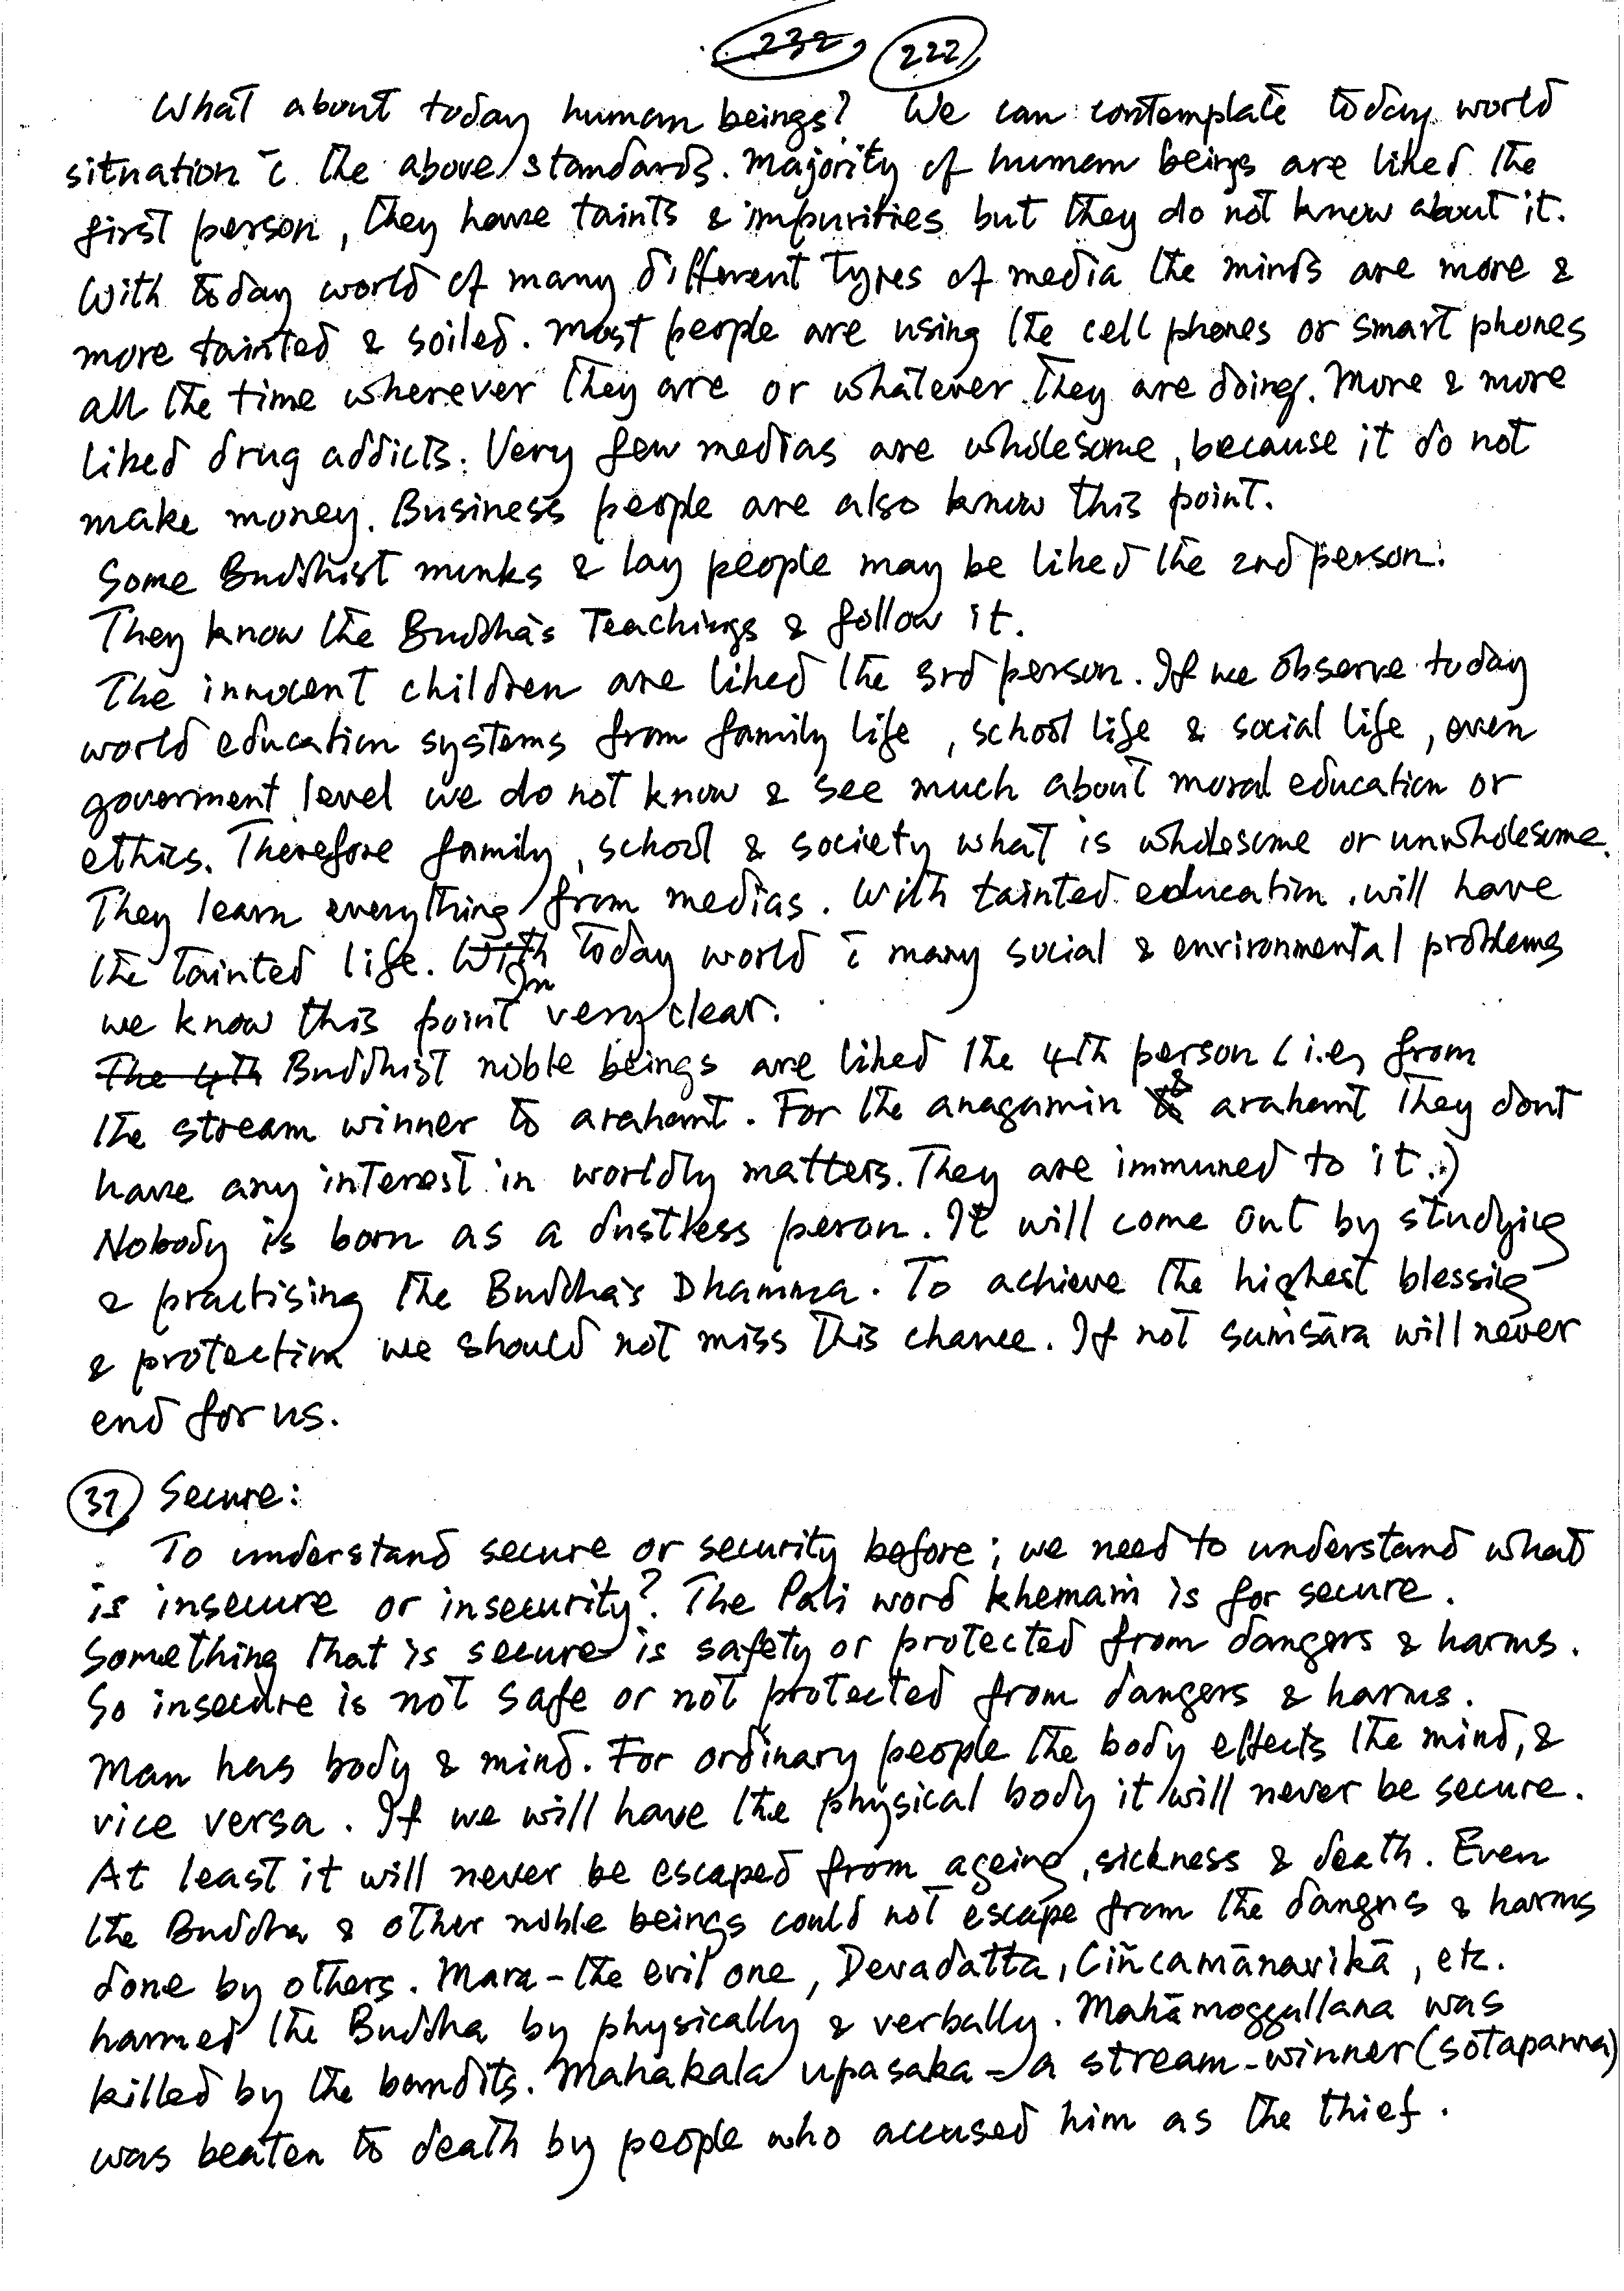 232, 222
What about today human beings? We can contemplate today world
situation c̄ the above standards. Majority of human beings are liked the
first person, they have taints & impurities but they do not know about it.
With today world of many different types of media the minds are more &
more tainted & soiled. Most people are using the cell phones or smart phones
all the time wherever they are or whatever they are doing. More & more
liked drug addicts. Very few medias are wholesome, because it do not
make money. Business people are also know this point.
Some Buddhist monks & lay people may be liked the 2nd person.
They know the Buddha's Teachings & follow it.
The innocent children are liked the 3rd person. If we observe today
world education systems from family life, school life & social life, even
goverment level we do not know & see much about moral education or
ethics. Therefore family, school & society what is wholesome or unwholesome.
They learn everything from medias. With tainted education, will have
the tainted life. With In today world c̄ many social & environmental problems
we know this point very clear.
The 4th Buddhist noble beings are liked the 4th person (i.e, from
the stream winner to arahant. For the anagamin & arahant they dont
have any interest in worldly matters. They are immuned to it.)
Nobody is born as a dustless peron. It will come out by studying
& practising the Buddha's Dhamma. To achieve the highest blessing
& protection we should not miss this chance. If not saṁsāra will never
end for us.
37) Secure:
To understand secure or security before; we need to understand what
is insecure or insecurity? The Pali word khemaṁ is for secure.
Something that is secure is safety or protected from dangers & harms.
So insecure is not safe or not protected from dangers & harms.
Man has body & mind. For ordinary people the body effects the mind, &
vice versa. If we will have the physical body it will never be secure.
At least it will never be escaped from ageing, sickness & death. Even
the Buddha & other noble beings could not escape from the dangers & harms
done by others. Mara - the evil one, Devadatta, Ciñcamānavikā, etc.
harmed the Buddha by physically & verbally. Mahāmoggallana was
killed by the bandits. Mahakala upasaka - a stream-winner (sotapanna)
was beaten to death by people who accused him as the thief.